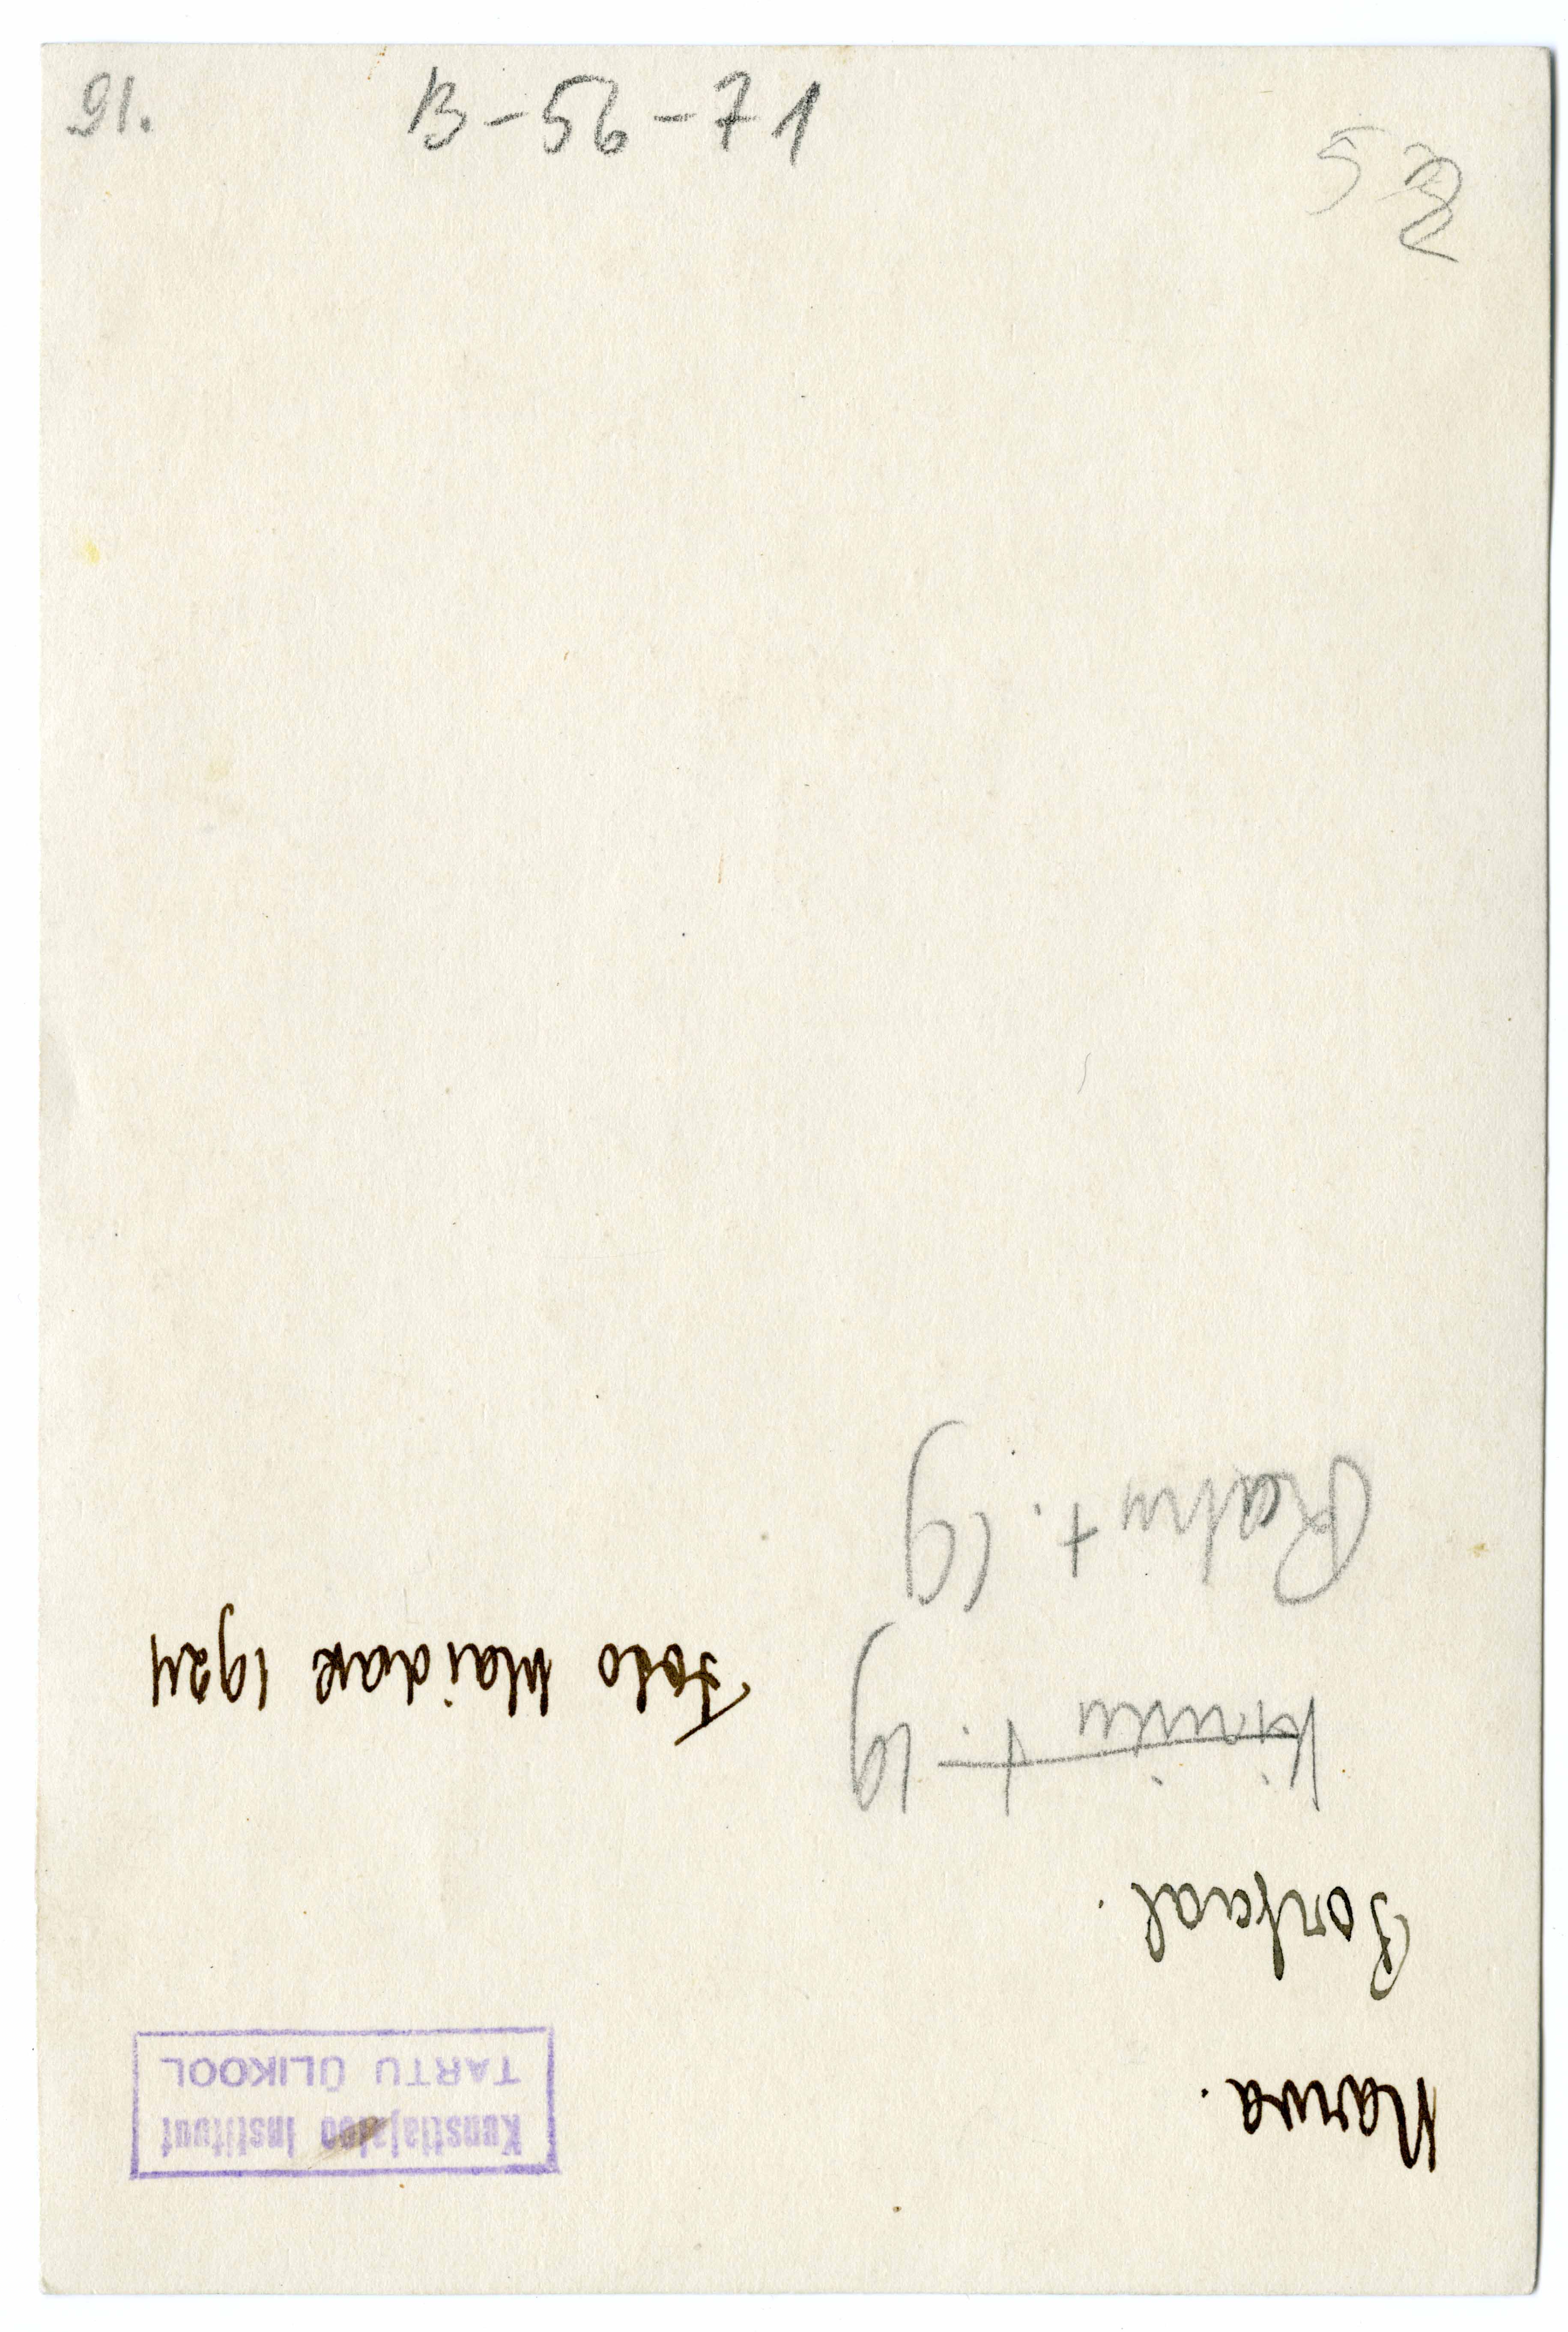 B-56-71
Narva.
Portaal.
Rahu t. 19
Foto Maidak 1924
Kunstiajaloo Instituut
TARTU ÜLIKOOL